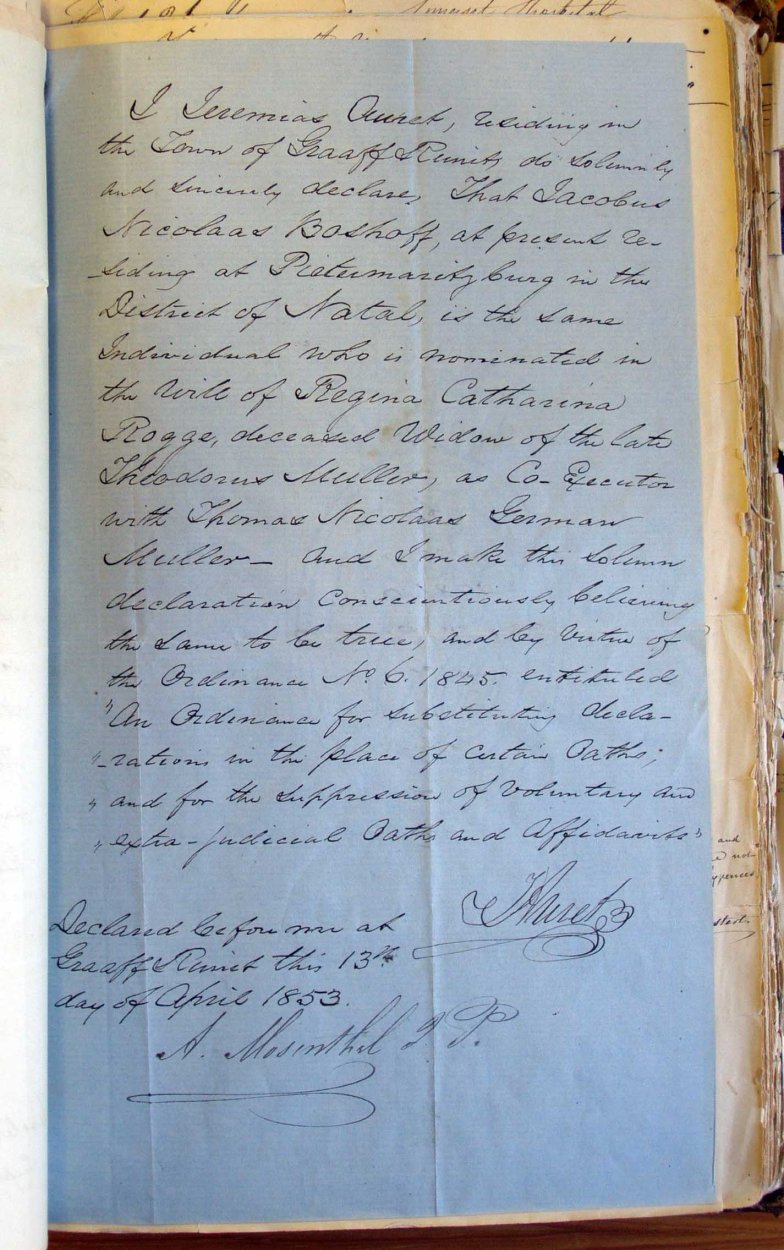 Somerset Hospital
I Jeremias Auret, residing in
the Town of Graaff Reinet, do solemnly
and sincerely declare, That Jacobus
Nicolaas Boshoff, at present re-
-siding at Pietermaritzburg in the
District of Natal, is the same
Individual who is nominated in
the Will of Regina Catharina
Rogge, deceased Widow of the late
Theodorus Muller, as Co-Executor
with Thomas Nicolaas German
Muller— and I make this solemn
declaration conscientiously believing
the same to be true, and by Virtue of
the Ordinance No. 6. 1845. entituled
"An Ordinance for substituting decla-
"-rations in the place of certain Oaths;
" and for the suppression of voluntary and
" extra-judicial Oaths and Affidavits"
JAuret
Declared before me at
Graaff Reinet this 13th
day of April 1853.
A. Mosenthal J. P.
and